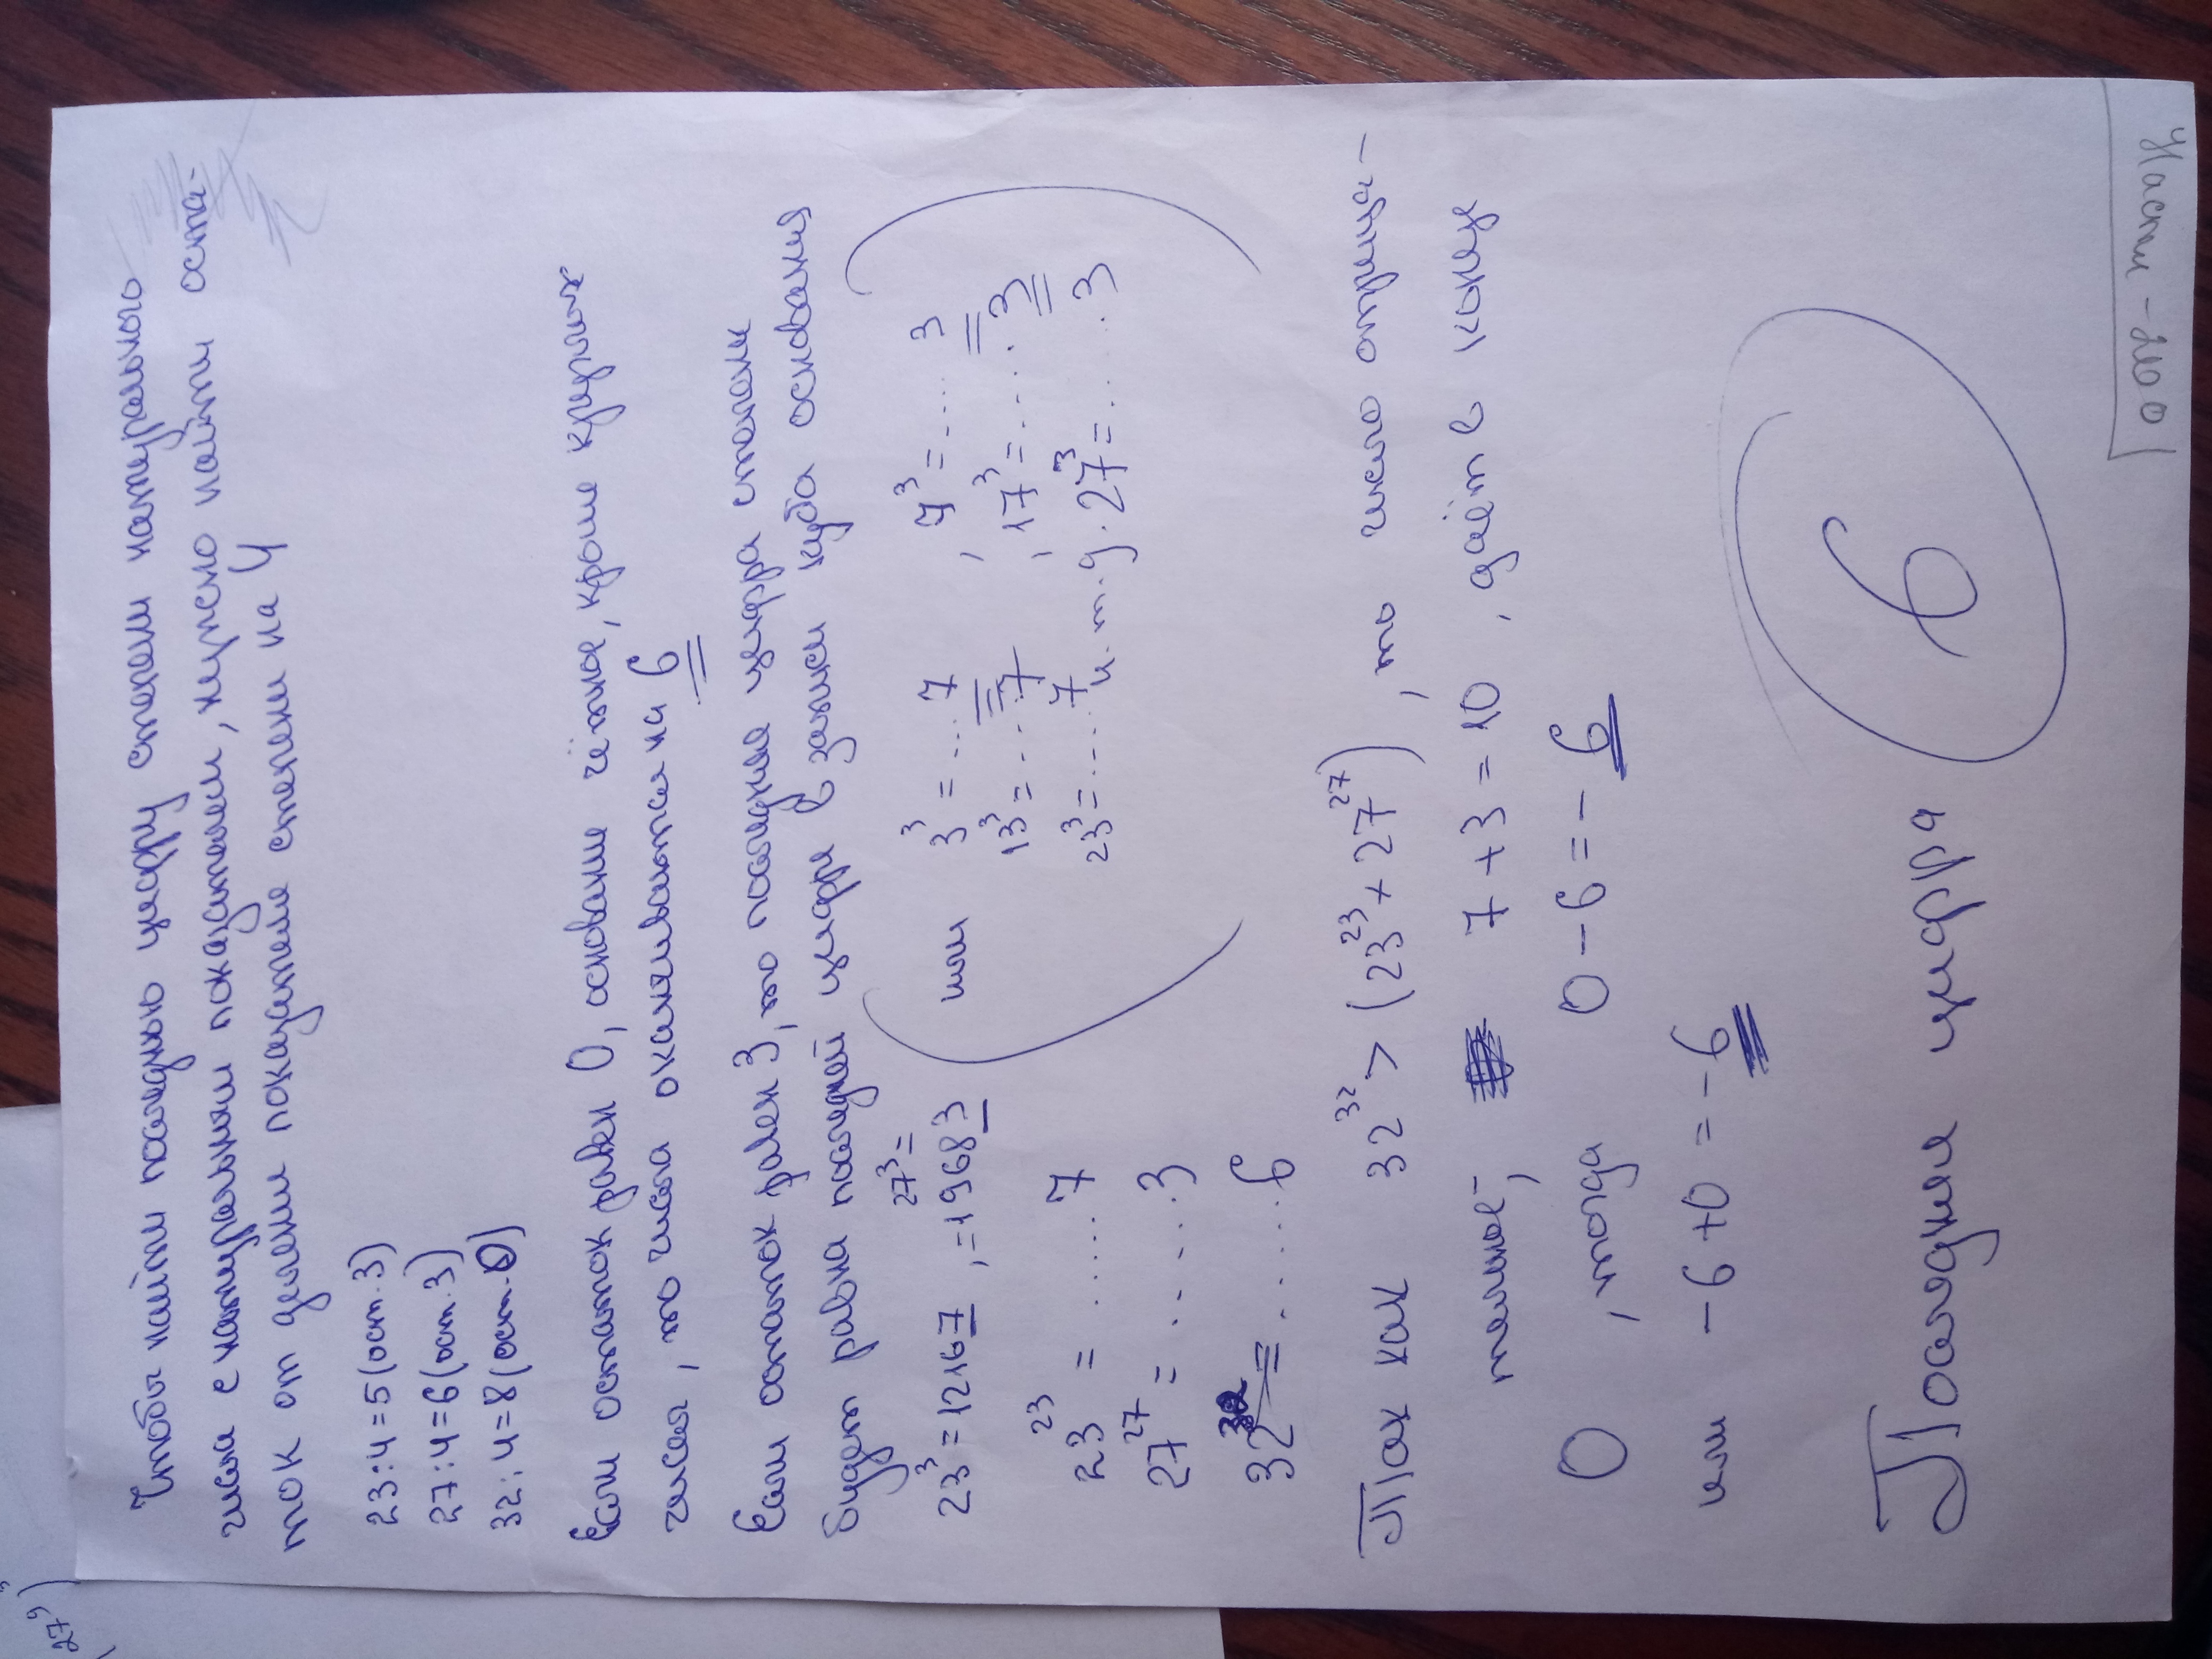 Чтобы найти последнюю цифру степени натурального
числа с натуральным показателем, нужно найти оста-
ток от деления показателя степени на 4
23:4=5(ост.3)
27:4=6(ост.3)
32:4=8(ост.0)
Если остаток равен 0, основание чётное, кроме круглых
чисел, то числа оканчиваются на 6
Если остаток равен 3, то последняя цифра степени
будет равна последней цифре в записи куба основания
23³=12167, 27³=
=19683
или 3³=....7, 7³=....3
13³=....7, 17³=.....3
23³=....7 и.т.д. 27³=.....3
23²³=.....7
27²⁷=.....3
32³²=.....6
Так как 32³²>(23²³+27²⁷), то число отрица-
тельное, 7+3=10, даёт в конце
0, тогда 0-6=-6
или -6+0=-6
Последняя цифра 6
Насти-200
27⁹)